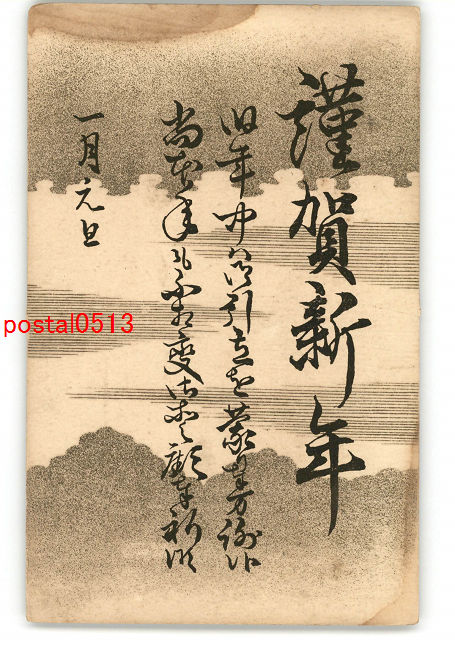 謹賀新年
旧年中ハ御引立を蒙り万謝候
尚本年も不相変御愛顧奉祈候
一月元旦
postal0513